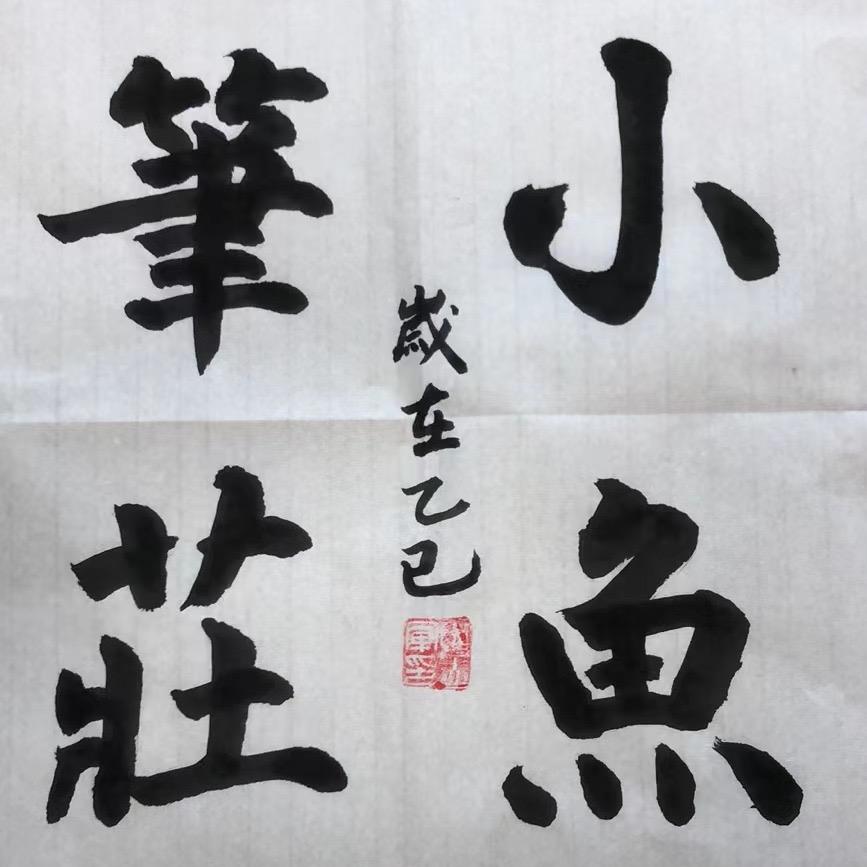 小魚
筆莊
歲在乙巳